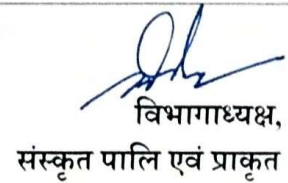 विभागाध्यक्ष,
संस्कृत पालि एवं प्राकृत